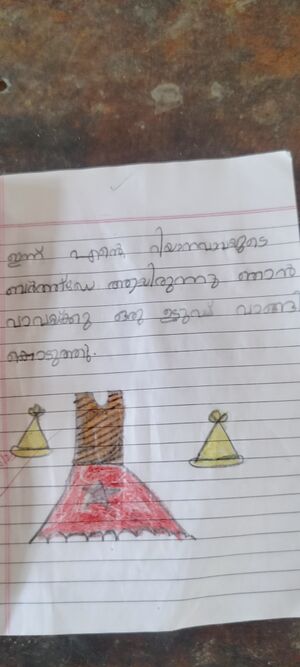 ഇന്ന് എന്റെ റിയാനവാവയുടെ
ബർത്ത്ഡേ ആയിരുന്നു ഞാൻ
വാവയ്ക്കു ഒരു ഉടുപ്പ് വാങ്ങി
കൊടുത്തു.